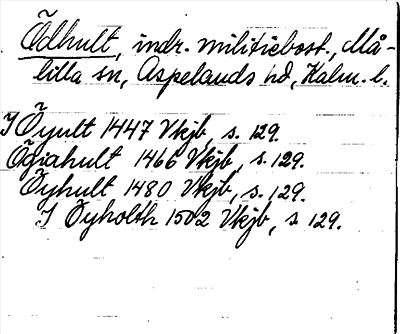 Ödhult, indr. militiebost., Må-
lilla sn, Aspelands hd, Kalm. l.
I Öyult 1447 Vkjb, s. 129.
Ögiahult 1466 Vkjb, s. 129.
Öyhult 1480 Vkjb, s. 129.
I Öyholth 1502 Vkjb, s 129.